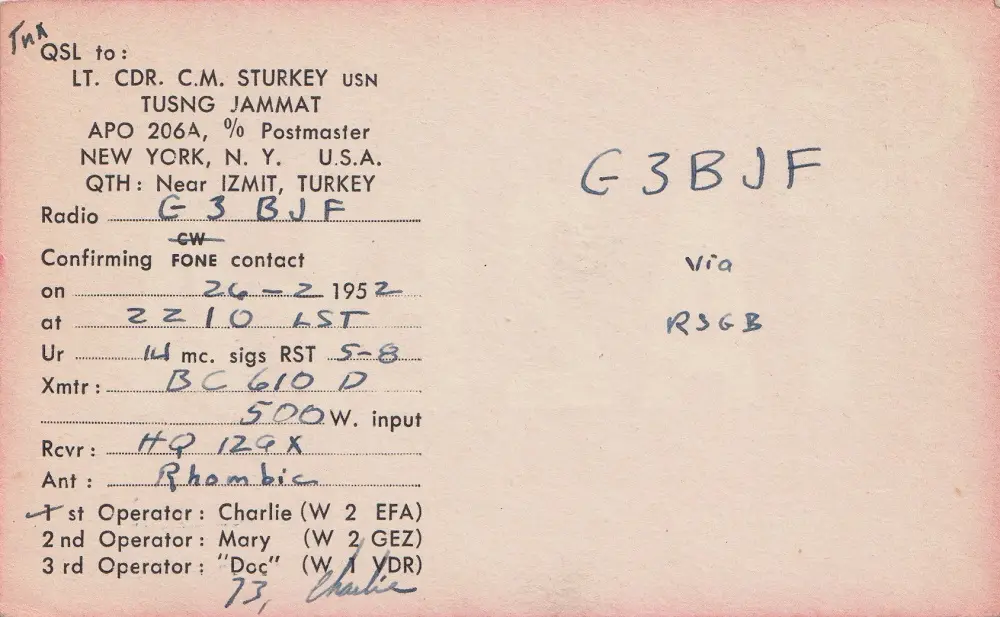 Tnx
QSL to:
LT. CDR. C.M. STURKEY USN
TUSNG JAMMAT
APO 206A, % Postmaster
NEW YORK, N. Y. U.S.A.
QTH: Near IZMIT, TURKEY
Radio G 3 BJF
CW
Confirming FONE contact
on 26-2 1952
at 2210 LST
Ur 14 mc. sigs RST 5-8
Xmtr: BC 610 D
500 W. input
Rcvr: HQ 129X
Ant: Rhombic
1 st Operator: Charlie (W 2 EFA)
2 nd Operator: Mary (W 2 GEZ)
3 rd Operator: "Doc" (W 1 VDR)
73, Charlie
G3BJF
Via
RSGB